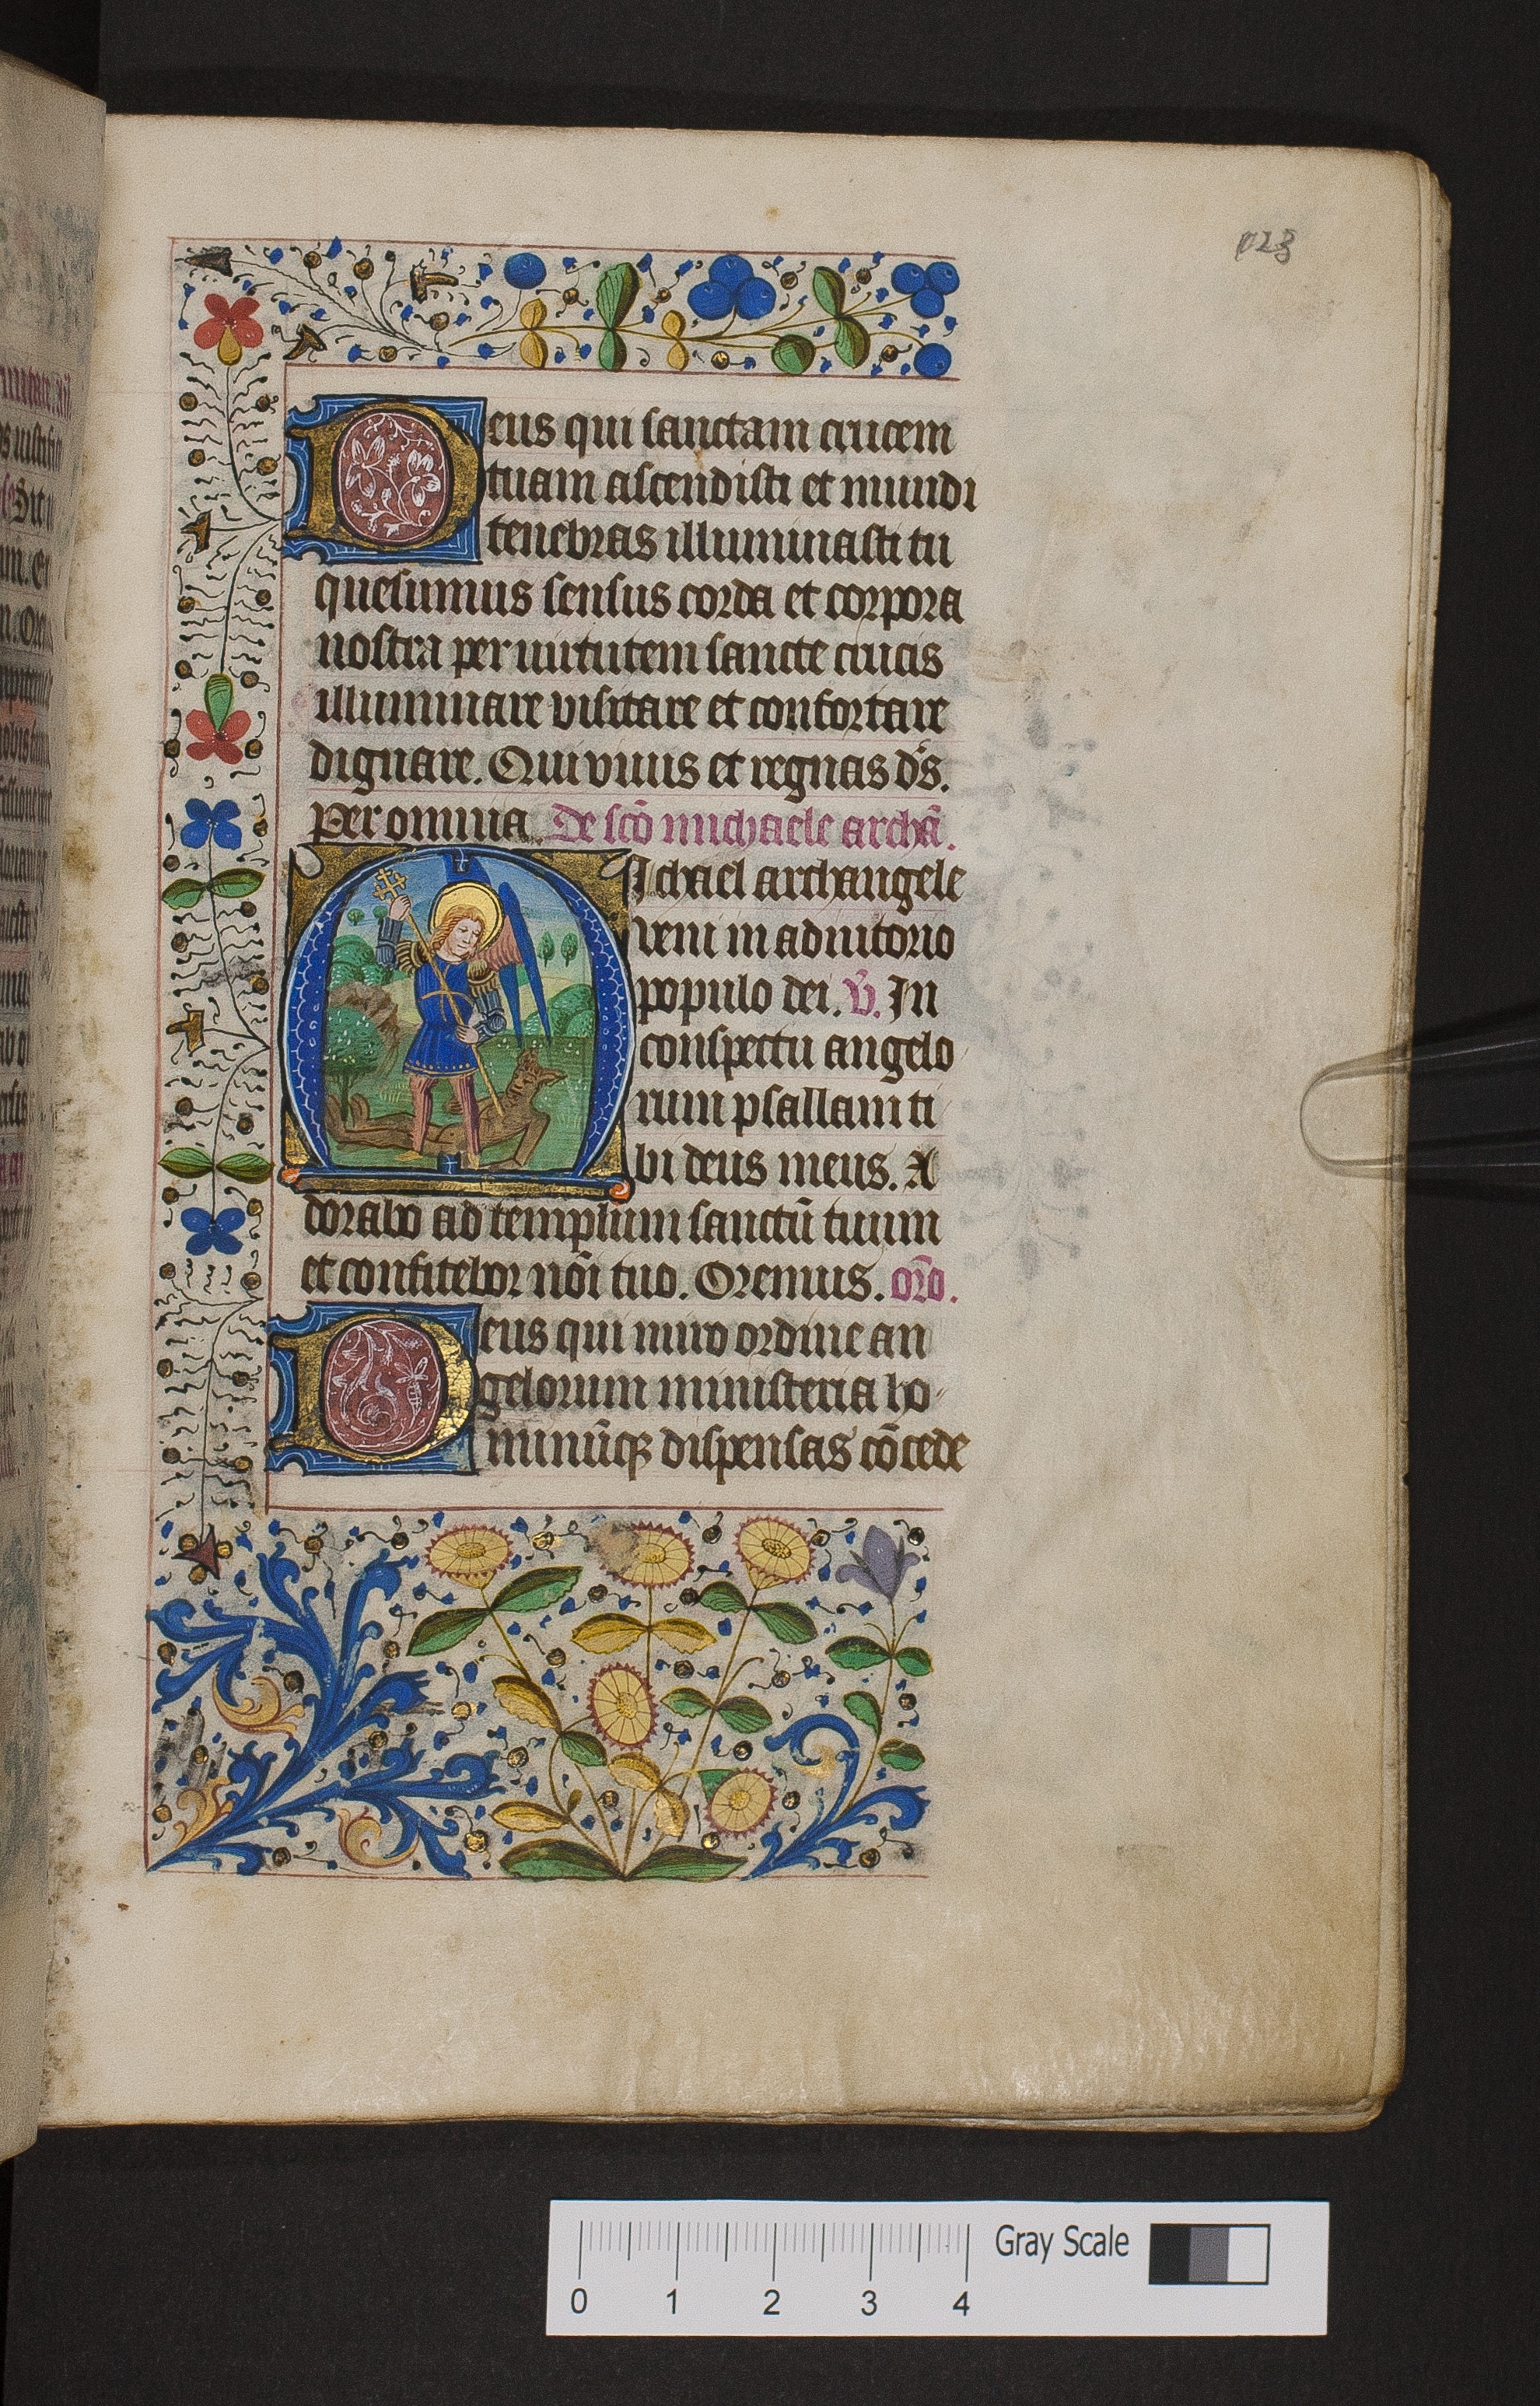 123
Deus qui sanctam crucem
tuam ascendisti et mundi
tenebras illuminasti tu
quesumus sensus corda et corpora
nostra per uirtutem sancte crucis
illuminare visitare et confortare
dignare. Qui viuis et regnas ds̄.
Per omnia De scō michaele archā.
Michael archangele
veni in adiutorio
populo dei. v̄. In
conspectu angelo
rum psallam ti
bi deus meus. A
dorabo ad templum sanctū tuum
et confitebor nōi tuo. Oremus. orō.
Deus qui miro ordine an
gelorum ministeria ho
minūqꝫ dispensas cōcede
0 1 2 3 4 Gray Scale